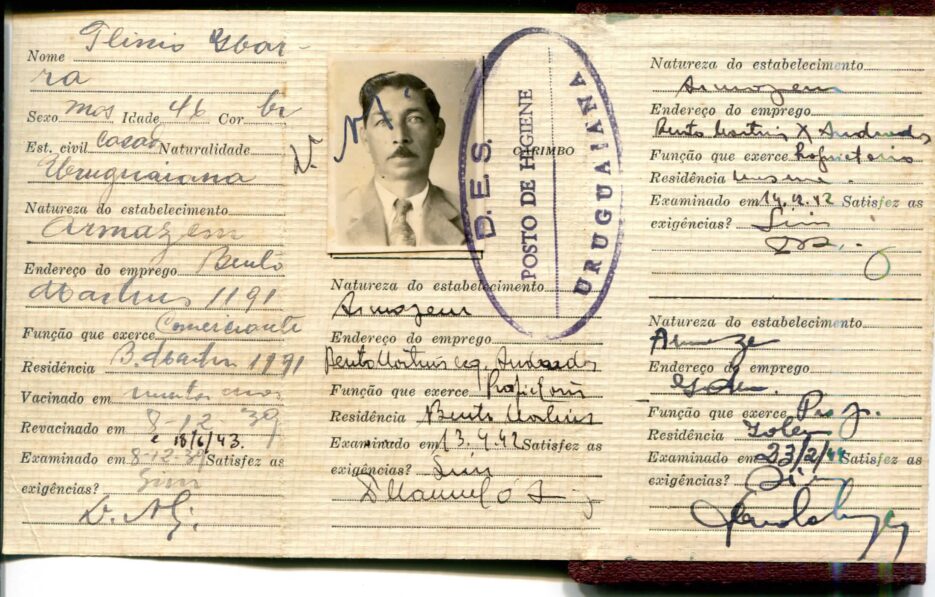 Nome Plinio Ybar-
ra
Sexo mas Idade 46 Cor br
Est. civil casad Naturalidade
Uruguaiana
Natureza do estabelecimento
Armazem
Endereço do emprego Bento
Martins 1191
Função que exerce Comerciante
Residência B. Martins 1191
Vacinado em muitos anos
Revacinado em 8-12 39
e 18/6/43.
Examinado em 8-12-39 Satisfez as
exigências? Sim
D. E. S.
POSTO DE HIGIENE
CARIMBO
URUGUAIANA
Natureza do estabelecimento
Armazem
Endereço do emprego
Bento Martins esq. Andradas
Função que exerce
Residência Bento Martins
Examinado em 13.4.42 Satisfez as
exigências? Sim
Natureza do estabelecimento
Armazem
Endereço do emprego
Bento Martins X Andradas
Função que exerce Proprietario
Residência mesma.
Examinado em 14.9.42 Satisfez as
exigências? Sim
Natureza do estabelecimento
Endereço do emprego
Função que exerce Prop.
Residência
Examinado em 23/2/44 Satisfez as
exigências? Sim